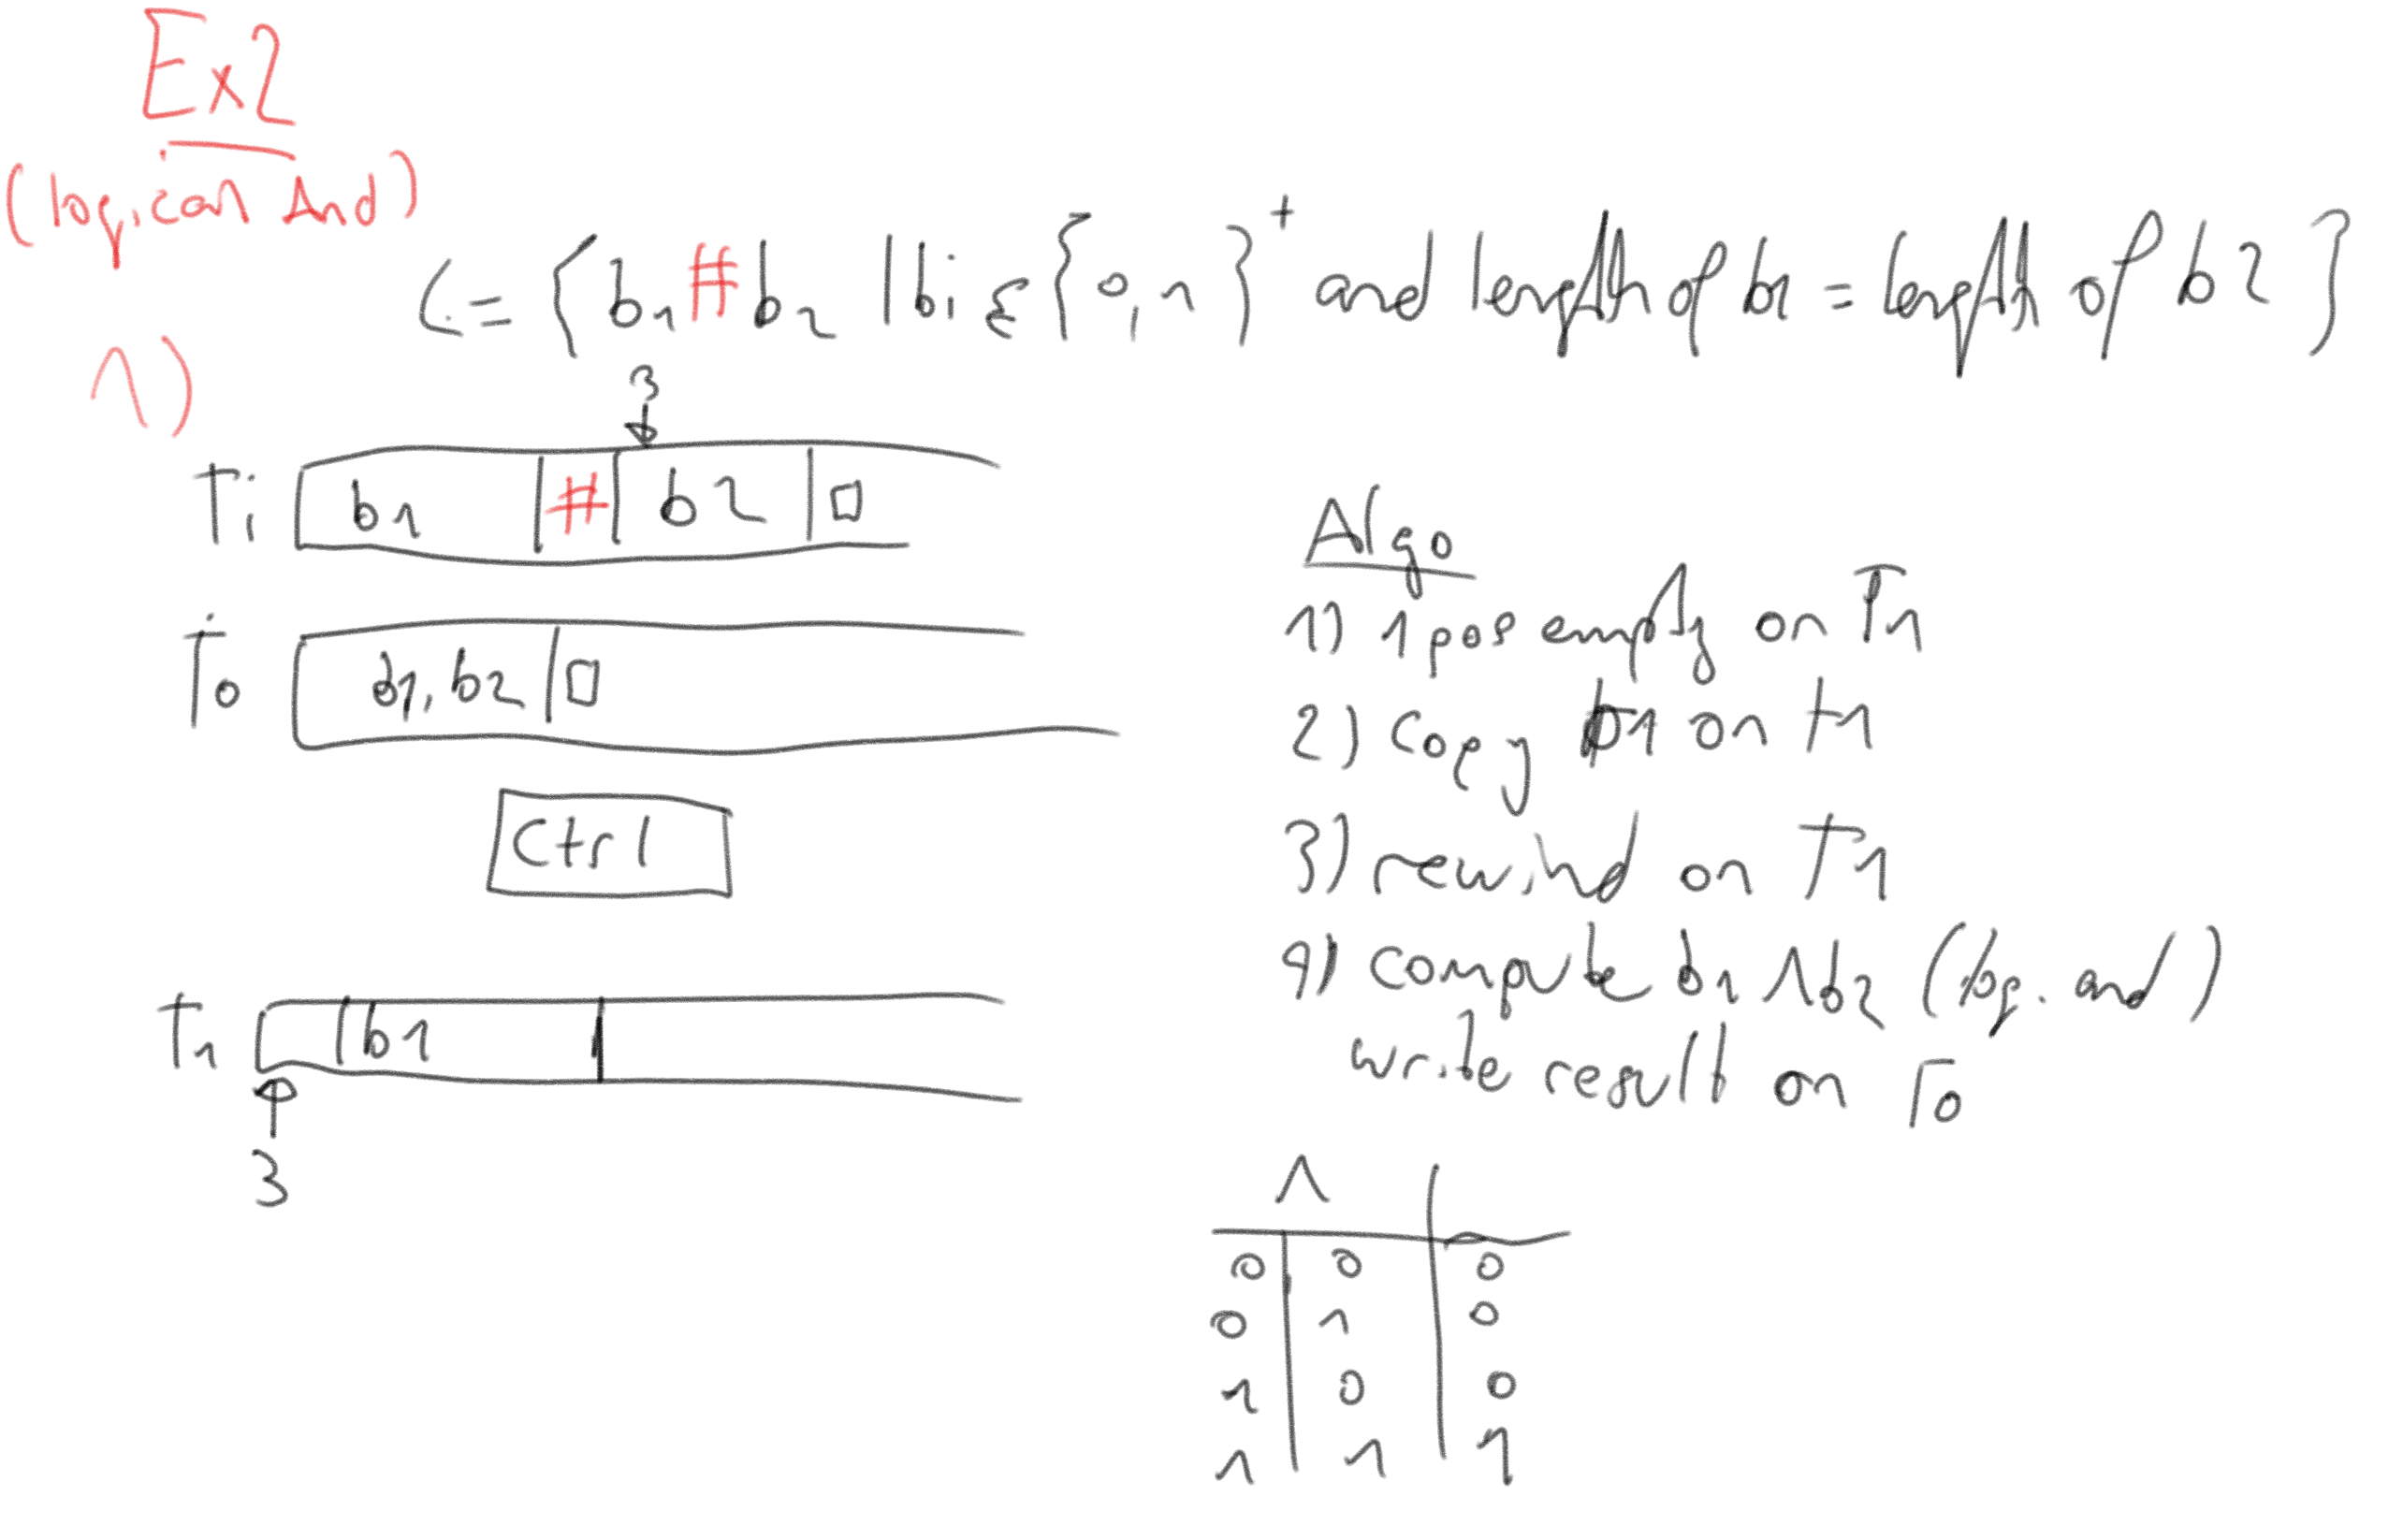 Ex2
(logical And)
L = { b1 # b2 | bi ∈ {0,1}+ and length of b1 = length of b2 }
1)
3
Ti b1 # b2 □
To b1, b2 □
Ctrl
T1 b1
3
Algo
1) 1 pos empty on T1
2) copy b1 on t1
3) rewind on T1
4) compute b1 ∧ b2 (log. and)
write result on To
∧
0 0 0
0 1 0
1 0 0
1 1 1